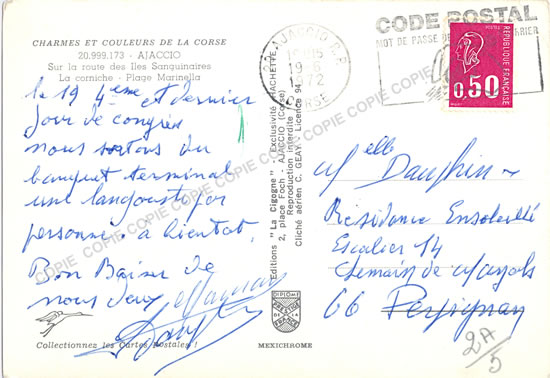 CHARMES ET COULEURS DE LA CORSE
20.999.173 - AJACCIO
Sur la route des Iles Sanguinaires
La corniche - Plage Marinella
le 19 4eme et dernier
jour de congrés
nous sortons du
banquet terminal
une langouste par
personne. a bientot.
Bon Baiser de
nous deux
Collectionnez les Cartes Postales !
Editions "La Cigogne" - Exclusivité HACHETTE
2, place Foch - AJACCIO (Corse)
Reproduction interdite
Cliché aérien C. GEAY - Licence 94
DIPLOME
PRESTIGE
DE LA
FRANCE
MEXICHROME
AJACCIO R.P.
19-6
1972
CORSE
CODE POSTAL
MOT DE PASSE DE
POSTES
REPUBLIQUE FRANÇAISE
0,50
Melle Dauphin
Résidence Ensoleillé
Escalier 14
Chemin de
66 Perpignan
2A/5
COPIE COPIE COPIE COPIE COPIE COPIE COPIE